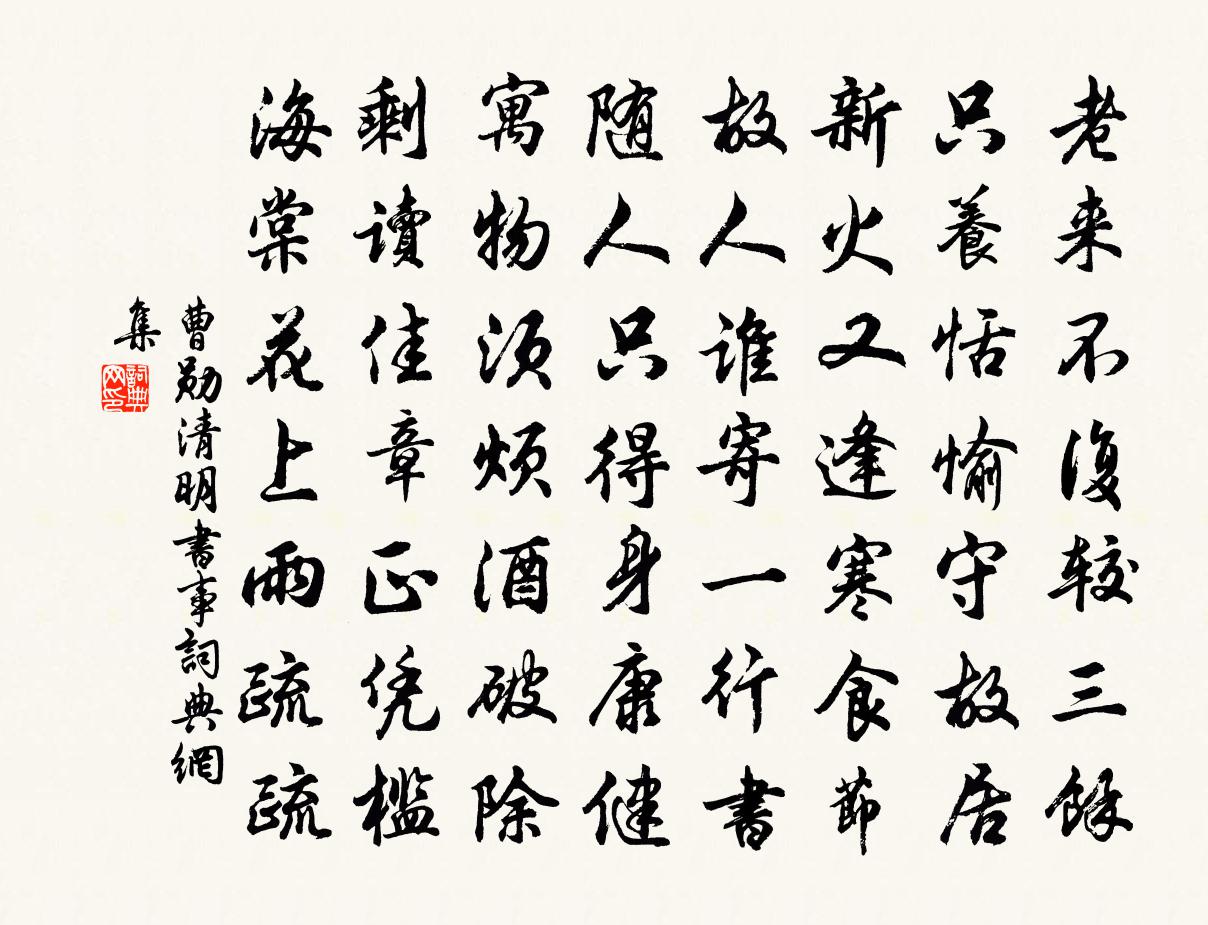 老来不復较三餘
只養恬愉守故居
新火又逢寒食節
故人谁寄一行書
随人只得身康健
寓物须烦酒破除
剩讀佳章正凭槛
海棠花上雨疏疏
曹勛清明書事詞典網
集
詞典
网印